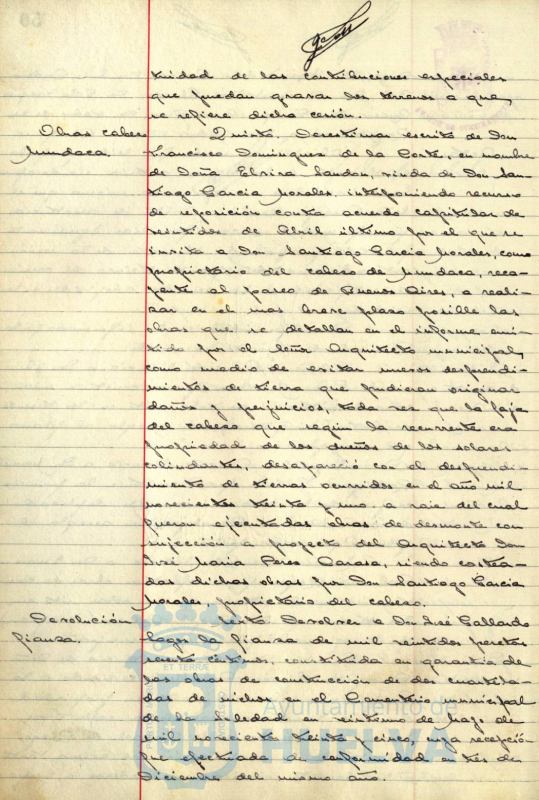 tuidad de las contribuciones especiales
que puedan gravar los terrenos a que,
se refiere dicha cesión.
Obras cabezo
Mundaca.
Quinto. Desestimar escrito de Don
Francisco Domínguez de la Corte, en nombre
de Doña Elvira Sandon, viuda de Don San-
tiago García Morales, interponiendo recurso
de reposición contra acuerdo capitular de
veintidos de Abril último por el que se
invita a Don Santiago García Morales, como
propietario del cabezo de Mundaca, reca-
yente al paseo de Buenos Aires, a reali-
zar en el mas breve plazo posible las
obras que se detallan en el informe emi-
tido por el Señor Arquitecto municipal,
como medio de evitar nuevos desprendi-
mientos de tierra que pudieran originar
daños y perjuicios, toda vez que la faja
del cabezo que según la recurrente era
propiedad de los dueños de los solares
colindantes, desapareció con el desprendi-
miento de tierras ocurridos en el año mil
novecientos treinta y uno a raiz del cual
fueron ejecutadas obras de desmonte con
sujección a proyecto del Arquitecto Don
José María Perez Carasa, siendo costea-
das dichas obras por Don Santiago García
Morales, propietario del cabezo.
Devolución
fianza.
Sexto. Devolver a Don José Gallardo
la fianza de mil veintidos pesetas
sesenta centimos, constituida en garantia de
las obras de construcción de dos cuartela-
das de nichos en el Cementerio municipal
de la Soledad en veintiuno de Mayo de
mil novecientos treinta y cinco, cuya recepción
fue efectuada de conformidad en tres de
Diciembre del mismo año.
Ayuntamiento de
HUELVA